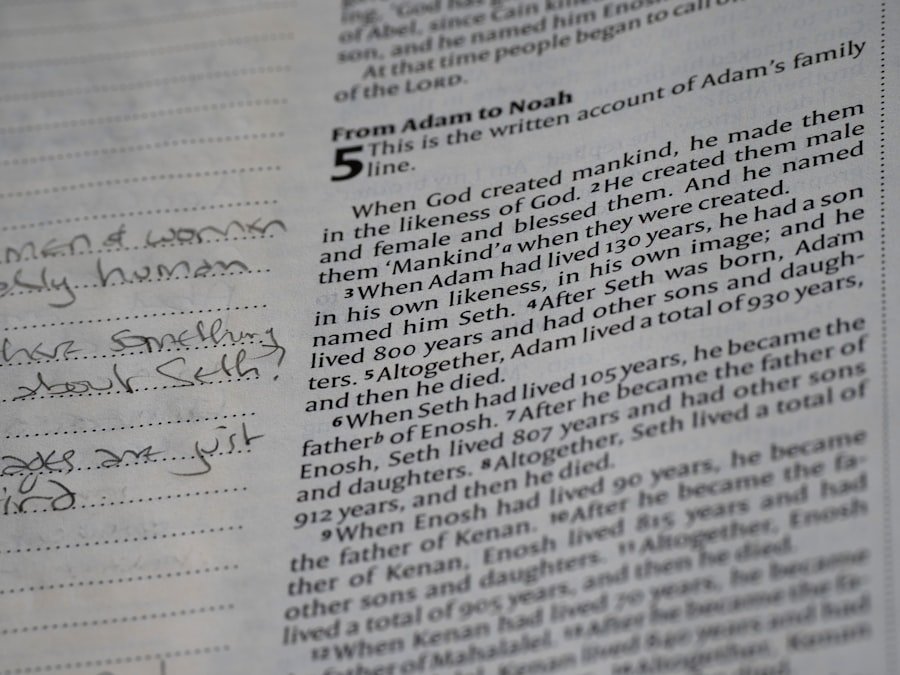 ing, 'God has
of Abel, since Cain killed
son, and he named him Enosh
At that time people began to call on
of the LORD.
From Adam to Noah
5 This is the written account of Adam's family
line.
When God created mankind, he made them
in the likeness of God. 2 He created them male
and female and blessed them. And he named
them 'Mankind'a when they were created.
3 When Adam had lived 130 years, he had a son
in his own likeness, in his own image; and he
named him Seth. 4 After Seth was born, Adam
lived 800 years and had other sons and daugh-
ters. 5 Altogether, Adam lived a total of 930 years,
and then he died.
6 When Seth had lived 105 years, he became the
fatherb of Enosh. 7 After he became the father of
Enosh, Seth lived 807 years and had other sons
and daughters. 8 Altogether, Seth lived a total of
912 years, and then he died.
9 When Enosh had lived 90 years, he became
the father of Kenan. 10 After he became the fa-
ther of Kenan, Enosh lived 815 years and had
other sons and daughters. 11 Altogether, Enosh
lived a total of 905 years, and then he died.
12 When Kenan had lived 70 years, he became
the father of Mahalalel. 13 After he became the fa-
Kenan lived 840 years and had
Altogether, Kenan
died.
men & women
human
have something
about Seth?
ages are just